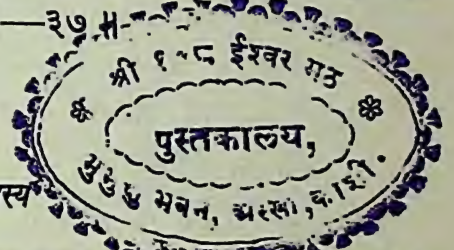 —३७ ॥
श्री १०८ ईश्वर मठ
पुस्तकालय,
मुमुक्षु भवन, अस्सी, काशी.
स्य